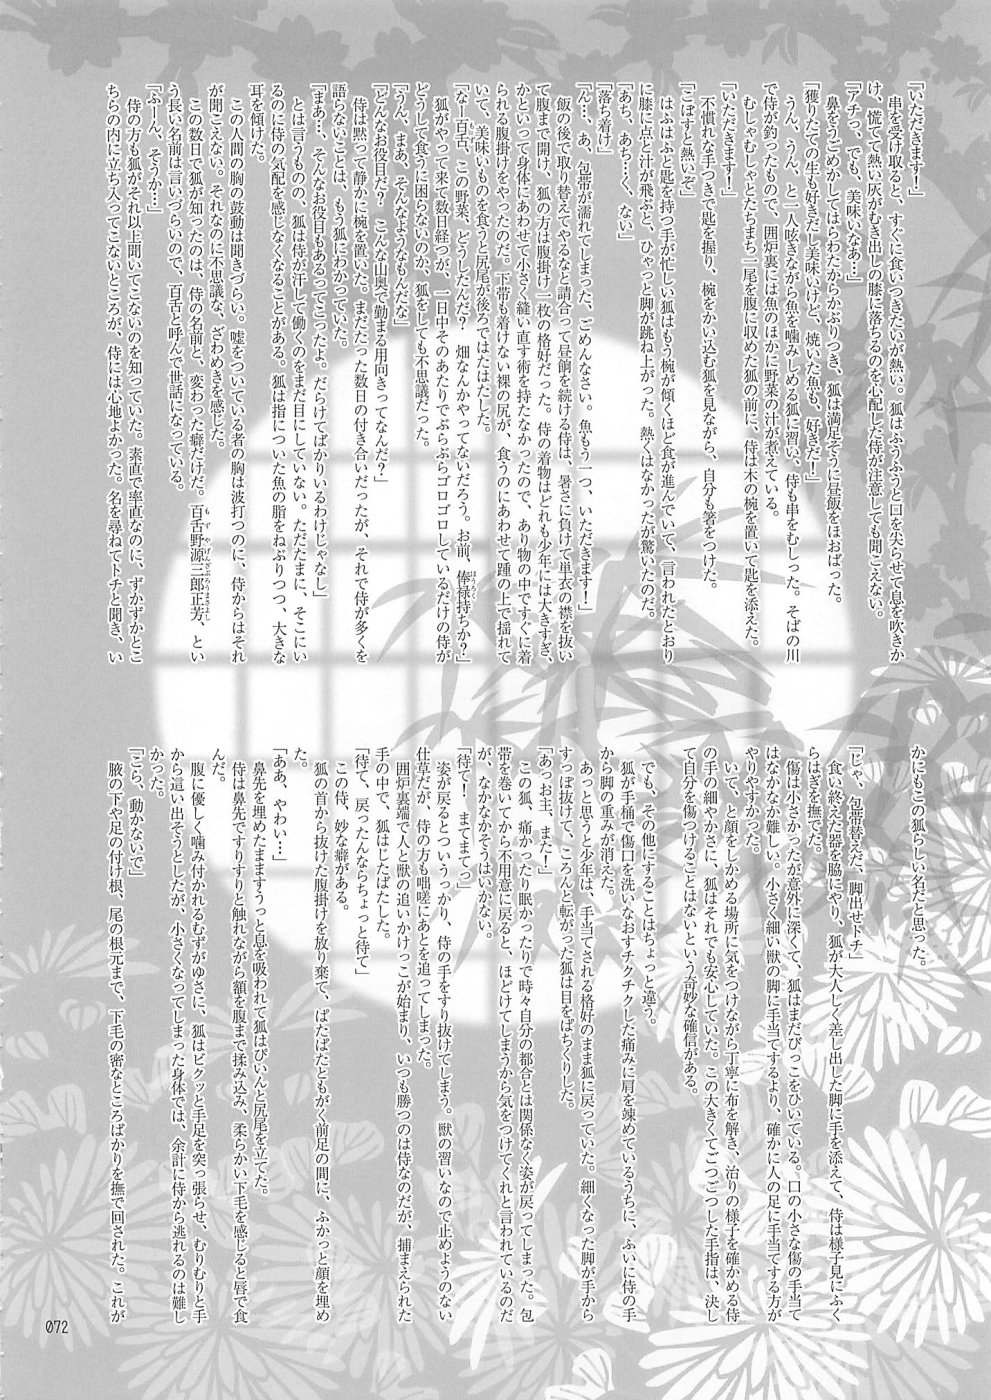 「いただきます！」
　串を受け取ると、すぐに食いつきたいが熱い。狐はふうふうと口を尖らせて息を吹きか
け、慌てて熱い灰がむき出しの膝に落ちるのを心配した侍が注意しても聞こえない。
「アチっ、でも、美味いなぁ…」
　鼻をうごめかしてはらわたからかぶりつき、狐は満足そうに昼飯をほおばった。
「獲りたての生も好きだし美味いけど、焼いた魚も、好きだ！」
　うん、うん、と一人呟きながら魚を噛みしめる狐に習い、侍も串をむしった。そばの川
で侍が釣ったもので、囲炉裏には魚のほかに野菜の汁が煮えている。
　むしゃむしゃとたちまち二尾を腹に収めた狐の前に、侍は木の椀を置いて匙を添えた。
「いただきます！」
　不慣れな手つきで匙を握り、椀をかい込む狐を見ながら、自分も箸をつけた。
「こぼすと熱いぞ」
　はふはふと匙を持つ手が忙しい狐はもう椀が傾くほど食が進んでいて、言われたとおり
に膝に点と汁が飛ぶと、ひゃっと脚が跳ね上がった。熱くはなかったが驚いたのだ。
「あち、あち…、く、ない」
「落ち着け」
「ん…、あ、包帯が濡れてしまった、ごめんなさい。魚もう一つ、いただきます！」
　飯の後で取り替えてやるなと請合って昼餉を続ける侍は、暑さに負けて単衣の襟を抜い
て腹まで開け、狐の方は腹掛け一枚の格好だった。侍の着物はどれも少年には大きすぎ、
かといって身体にあわせて小さく縫い直す術を持たなかったので、あり物の中ですぐに着
られる腹掛けをやったのだ。下帯も着けない裸の尻が、食うのにあわせて踵の上で揺れて
いて、美味いものを食うと尻尾が後ろではたはたした。
「なー百舌、この野菜、どうしたんだ？　畑なんかやってないだろう。お前、俸禄持ちか？」
　狐がやって来て数日経つが、一日中そのあたりでぶらぶらゴロゴロしているだけの侍が
どうして食うに困らないのか、狐をしても不思議だった。
「うん、まあ、そんなようなもんだな」
「どんなお役目だ？　こんな山奥で勤まる用向きってなんだ？」
　侍は黙って静かに椀を置いた。まだたった数日の付き合いだったが、それで侍が多くを
語らないことは、もう狐にわかっていた。
「まあ…、そんなお役目もあるってこったよ。だらけてばかりいるわけじゃなし」
　とは言うものの、狐は侍が汗して働くのをまだ目にしていない。ただたまに、そこにい
るのに侍の気配を感じなくなることがある。狐は指についた魚の脂をねぶりつつ、大きな
耳を傾けた。
　この人間の胸の鼓動は聞きづらい。嘘をついている者の胸は波打つのに、侍からはそれ
が聞こえない。それなのに不思議な、ざわめきを感じた。
　この数日で狐が知ったのは、侍の名前と、変わった癖だけだ。百舌野源三郎正芳、とい
う長い名前は言いづらいので、百舌と呼んで世話になっている。
「ふーん、そうか…」
　侍の方も狐がそれ以上聞いてこないのを知っていた。素直で率直なのに、ずかずかとこ
ちらの内に立ち入ってこないところが、侍には心地よかった。名を尋ねてトチと聞き、い
かにもこの狐らしい名だと思った。
「じゃ、包帯替えだ、脚出せトチ」
　食い終えた器を脇にやり、狐が大人しく差し出した脚に手を添えて、侍は様子見にふく
らはぎを撫でた。
　傷は小さかったが意外に深くて、狐はまだびっこをひいている。口の小さな傷の手当て
はなかなか難しい。小さく細い獣の脚に手当てするより、確かに人の足に手当てする方が
やりやすかった。
　いて、と顔をしかめる場所に気をつけながら丁寧に布を解き、治りの様子を確かめる侍
の手の細やかさに、狐はそれでも安心していた。この大きくてごつごつした手指は、決し
て自分を傷つけることはないという奇妙な確信がある。
　でも、その他にすることはちょっと違う。
　狐が手桶で傷口を洗いなおすチクチクした痛みに肩を竦めているうちに、ふいに侍の手
から脚の重みが消えた。
　あっと思うと少年は、手当てされる格好のまま狐に戻っていた。細くなった脚が手から
すっぽ抜けて、ころんと転がった狐は目をぱちくりした。
「あっお主、また！」
　この狐、痛かったり眠かったりで時々自分の都合とは関係なく姿が戻ってしまった。包
帯を巻いてから不用意に戻ると、ほどけてしまうから気をつけてくれと言われているのだ
が、なかなかそうはいかない。
「待て！　まてまてっ」
　姿が戻るとついうっかり、侍の手をすり抜けてしまう。獣の習いなので止めようのない
仕草だが、侍の方も咄嗟にあとを追ってしまった。
　囲炉裏端で人と獣の追いかけっこが始まり、いつも勝つのは侍なのだが、捕まえられた
手の中で、狐はじたばたした。
「待て、戻ったんならちょっと待て」
　この侍、妙な癖がある。
　狐の首から抜けた腹掛けを放り棄て、ぱたぱたともがく前足の間に、ふかっと顔を埋め
た。
「ああ、やわい…」
　鼻先を埋めたまますうっと息を吸われて狐はぴいんと尻尾を立てた。
　侍は鼻先ですりすりと触れながら額を腹まで揉み込み、柔らかい下毛を感じると唇で食
んだ。
　腹に優しく噛み付かれるむずがゆさに、狐はビクッと手足を突っ張らせ、むりむりと手
から這い出そうとしたが、小さくなってしまった身体では、余計に侍から逃れるのは難し
かった。
「こら、動かないで」
　腋の下や足の付け根、尾の根元まで、下毛の密なところばかりを撫で回された。これが
072